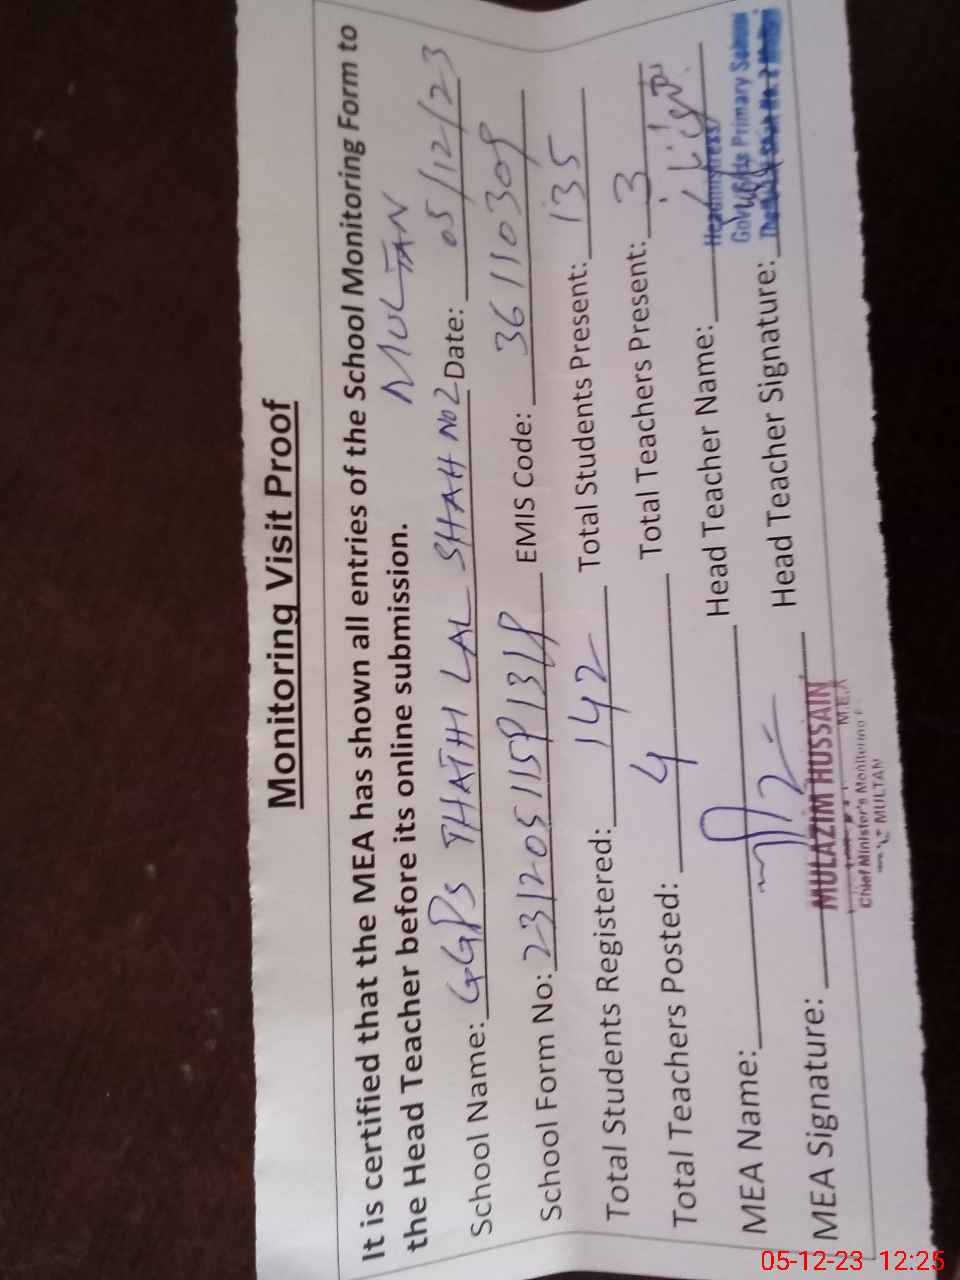 Monitoring Visit Proof
It is certified that the MEA has shown all entries of the School Monitoring Form to
the Head Teacher before its online submission.
MULTAN
School Name: GGPS THATHI LAL SHAH No2 Date: 05/12/23
School Form No: EMIS Code: 36110309
Total Students Registered: 142 Total Students Present: 135
Total Teachers Posted: 4 Total Teachers Present: 3
MEA Name: Head Teacher Name:
Headmistress
Primary School
MEA Signature: Head Teacher Signature:
MULAZIM HUSSAIN
M.E.A
Chief Minister's Monitoring
MULTAN
05-12-23 12:25